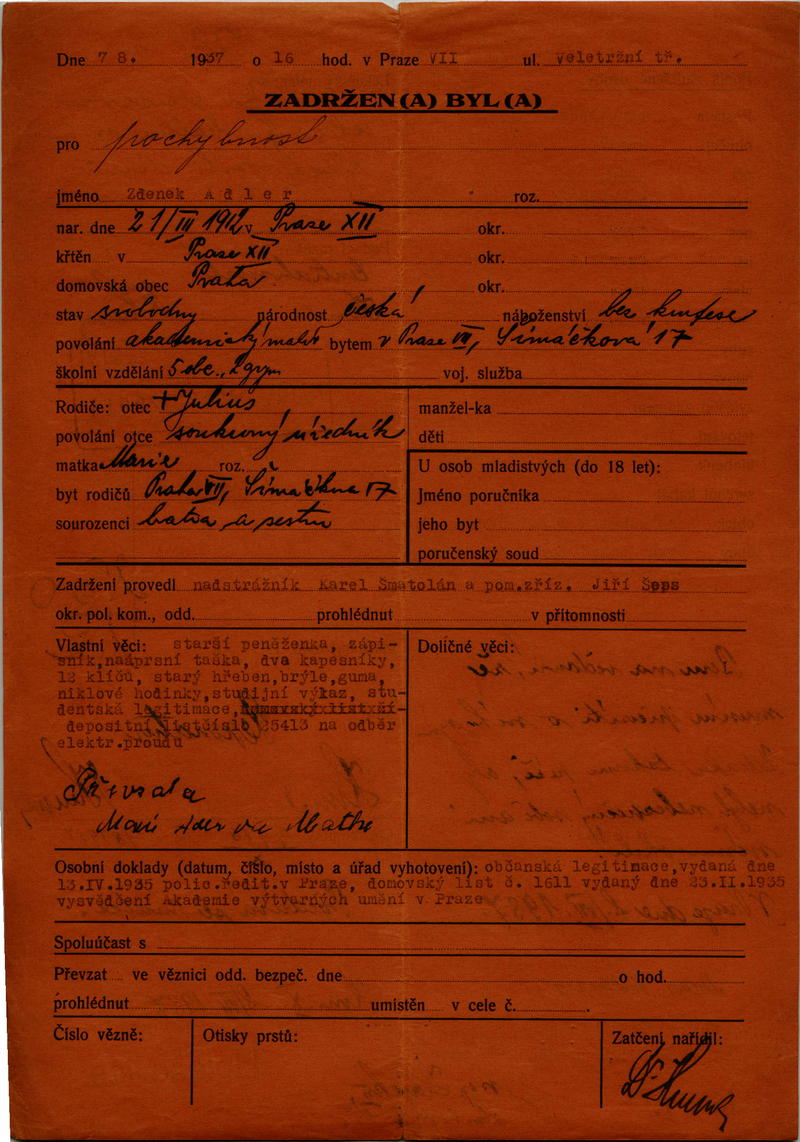 Dne 7 8. 1937 o 16 hod. v Praze VII ul. Veletržní tř.
ZADRŽEN(A) BYL(A)
pro pochybnost
jméno Zdenek Adler roz.
nar. dne 21/III 1912 v Praze XII okr.
křtěn v Praze XII okr.
domovská obec Praha okr.
stav svobodný národnost česká náboženství bez konfese
povolání akademický malíř bytem v Praze VII, Šimáčkova 17
školní vzdělání 5 obc., 2 gym voj. služba
Rodiče: otec + Julius
povolání otce soukromý úředník
matka Marie roz.
byt rodičů Praha VII, Šimáčkova 17
sourozenci bratra a sestru
manžel-ka
děti
U osob mladistvých (do 18 let):
Jméno poručníka
jeho byt
poručenský soud
Zadržení provedl nadstrážník Karel Šmatolán a pom.zříz. Jiří Šeps
okr. pol. kom., odd. prohlédnut v přítomnosti
Vlastní věci: starší peněženka, zápi-
sník,naáprsní taška, dva kapesníky,
12 klíčů, starý hřeben,brýle,guma,
niklové hodinky,studijní výkaz, stu-
dentská legitimace,
depositní listčíslo 25413 na odběr
elektr.proudu
Převzala
Marie Adlerová Matka
Doličné věci:
Osobní doklady (datum, číslo, místo a úřad vyhotovení): občanská legitinace,vydaná dne
13.IV.1935 polic.ředit.v Praze, domovský list č. 1611 vydaný dne 23.II.1935
vysvědčení Akademie výtvarných umění v Praze
Spoluúčast s
Převzat ve věznici odd. bezpeč. dne o hod.
prohlédnut umístěn v cele č.
Číslo vězně:
Otisky prstů:
Zatčení nařídil:
Dr